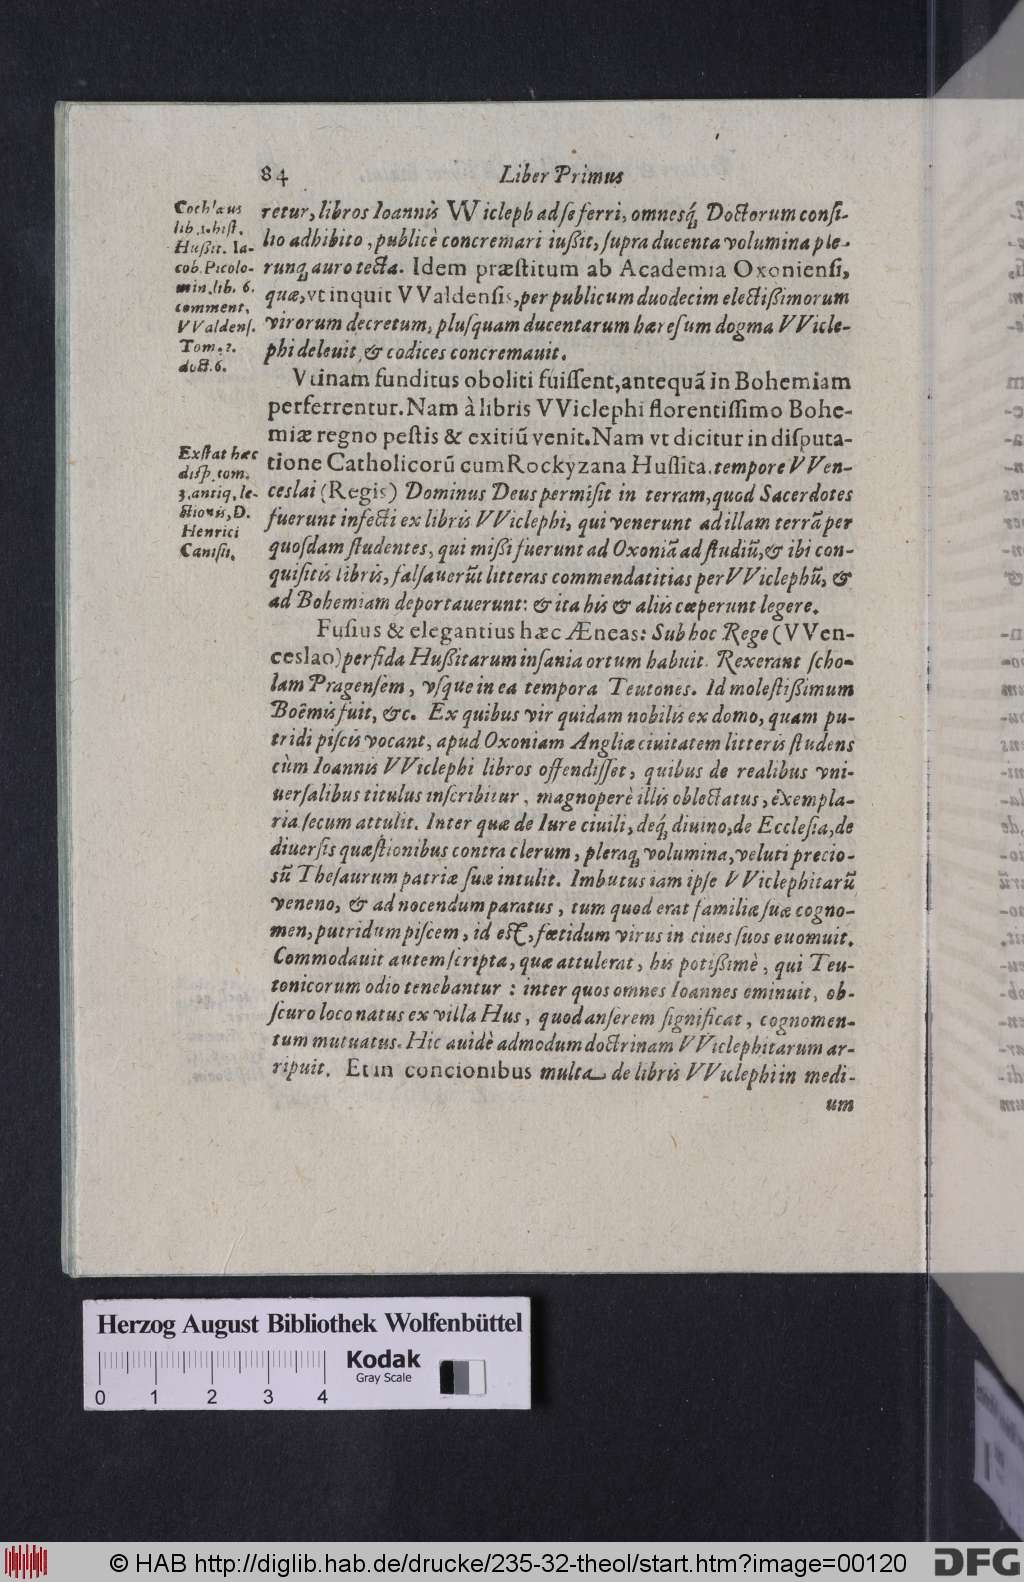 84 Liber Primus
Cochlæus
lib. 1. hiſt.
Hußit. Ia-
cob. Picolo-
min. lib. 6.
comment,
VValdenſ.
Tom. 2.
doct. 6.
retur, libros Ioannis VVicleph ad ſe ferri, omnesq́ Doctorum conſi-
lio adhibito, publicè concremari iußit, ſupra ducenta volumina ple-
runq auro tecta. Idem præſtitum ab Academia Oxonienſi,
quæ, vt inquit VValdenſis, per publicum duodecim electißimorum
virorum decretum, pluſquam ducentarum hæreſum dogma VVicle-
phi deleuit, & codices concremauit.
Vtinam funditus oboliti fuiſſent, antequã in Bohemiam
perferrentur. Nam à libris VViclephi florentiſſimo Bohe-
miæ regno peſtis & exitiũ venit. Nam vt dicitur in diſputa-
tione Catholicorũ cum Rockyzana Huſſita, tempore VVen-
ceslai (Regis) Dominus Deus permiſit in terram, quod Sacerdotes
fuerunt infecti ex libris VViclephi, qui venerunt ad illam terrã per
quoſdam ſtudentes, qui mißi fuerunt ad Oxoniã ad ſtudiũ, & ibi con-
quiſitis libris, falſauerũt litteras commendatitias per VViclephũ, &
ad Bohemiam deportauerunt: & ita his & aliis cæperunt legere.
Exſtat hæc
diſp. tom.
3. antiq. le-
ctionis, D.
Henrici
Caniſii.
Fuſius & elegantius hæc Æneas: Sub hoc Rege (VVen-
ceslao) perfida Hußitarum inſania ortum habuit. Rexerant ſcho-
lam Pragenſem, vſque in ea tempora Teutones. Id moleſtißimum
Boêmis fuit, &c. Ex quibus vir quidam nobilis ex domo, quam pu-
tridi piſcis vocant, apud Oxoniam Angliæ ciuitatem litteris ſtudens
cùm Ioannis VViclephi libros offendiſſet, quibus de realibus vni-
uerſalibus titulus inſcribitur, magnoperè illis oblectatus, exempla-
ria ſecum attulit. Inter quæ de Iure ciuili, deq́ diuino, de Eccleſia, de
diuerſis quæſtionibus contra clerum, pleraq volumina, veluti precio-
sũ Theſaurum patriæ ſuæ intulit. Imbutus iam ipſe VViclephitarũ
veneno, & ad nocendum paratus, tum quod erat familiæ ſuæ cogno-
men, putridum piſcem, id eſt, fœtidum virus in ciues ſuos euomuit.
Commodauit autem ſcripta, quæ attulerat, his potißimè, qui Teu-
tonicorum odio tenebantur: inter quos omnes Ioannes eminuit, ob-
ſcuro loco natus ex villa Hus, quod anſerem ſignificat, cognomen-
tum mutuatus. Hic auidè admodum doctrinam VViclephitarum ar-
ripuit. Et in concionibus multa de libris VViclephi in medi-
um
Herzog August Bibliothek Wolfenbüttel
0 1 2 3 4
Kodak
Gray Scale
© HAB http://diglib.hab.de/drucke/235-32-theol/start.htm?image=00120
DFG